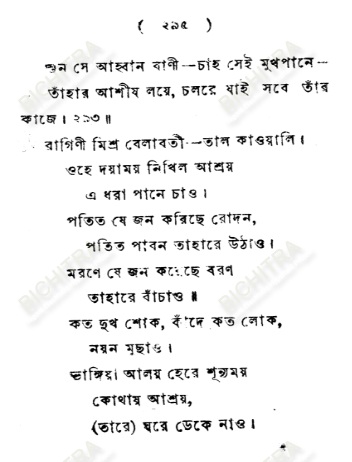 ( ২৯৫ )
শুন সে আহ্বান বাণী—চাহ সেই মুখপানে—
তাঁহার আশীষ লয়ে, চলরে যাই সবে তাঁর
কাজে। ২৯৩॥
রাগিণী মিশ্র বেলাবতী—তাল কাওয়ালি।
ওহে দয়াময় নিখিল আশ্রয়
এ ধরা পানে চাও।
পতিত যে জন করিছে রোদন,
পতিত পাবন তাহারে উঠাও।
মরণে যে জন করেছে বরণ
তাহারে বাঁচাও॥
কত দুখ শোক, কাঁদে কত লোক,
নয়ন মুছাও।
ভাঙ্গিয়া আলয় হেরে শূন্যময়
কোথায় আশ্রয়,
(তারে) ঘরে ডেকে নাও।
BICHITRA